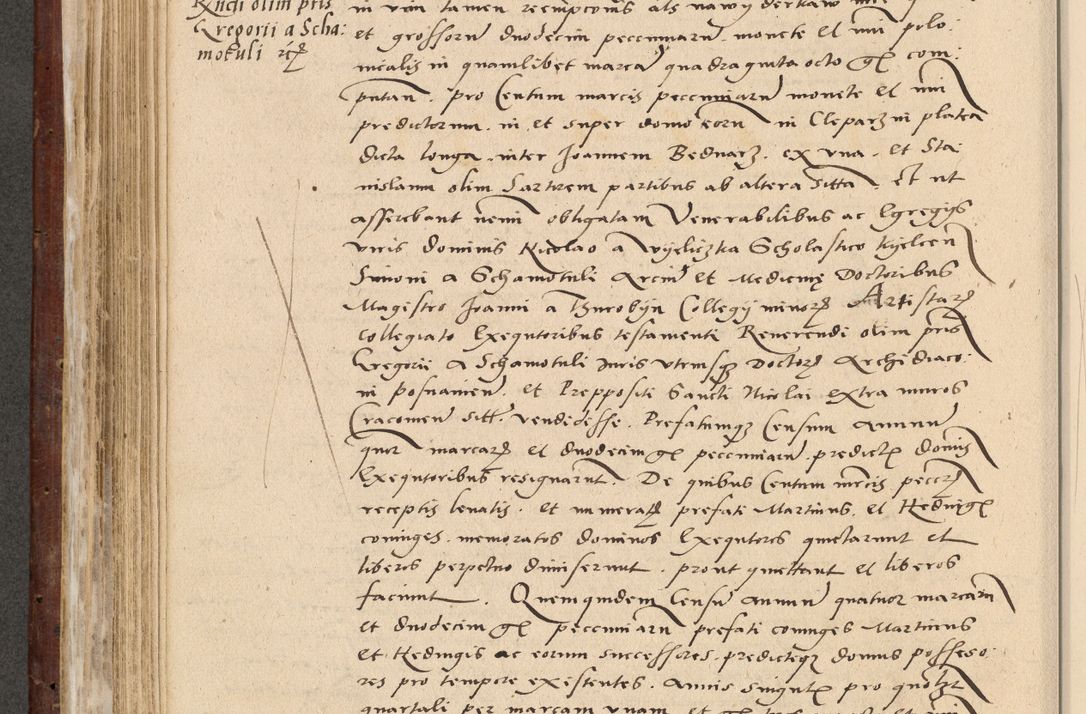 Rndi olim pris
Gregorii a Scha:
motuli
in vim tamen reempcionis als na wyderkaw
et grossorum duodecim pecuniarum monete et nui polo:
nicalis in quamlibet marcam quadraginta octo gr com:
putan. pro Centum marcis pecuniarum monete et nui
predictorum. in et super domo eorum in Cleparz in platea
dicta longa inter Joannem Bednarz. ex vna. et Sta:
nislaum olim Sartorem partibus ab altera sitta. Et ut
asserebant nemi obligatam Venerabilibus ac Egregiis
viris dominis Nicolao a Wyeliczka Scholastico Kyelcen
Simoni a Schamotuli Arcium et Medicinę Doctoribus
Magistro Joanni a Thurobyn Collegij minorum Artistarum
collegiato Exequtoribus testamenti Reverendi olim pris
Gregorii a Schamotuli Juris vtriusque Doctoris Archidiaco:
ni Posnanien. et Prepositi Sancti Nicolai extra muros
Cracovien sitt. vendidisse. Prefatumque Censum annuum
quor marcarum et duodecim gr pecuniarum predictarum dominis
Exequtoribus resignarunt. De quibus Centum mrcis pecuniarum
receptis levatis. et numeratis prefati Martinus et Heduigis
coniuges. memoratos dominos Exequtores quietarunt et
liberos perpetuo dimiserunt. prout quettant et liberos
faciunt. Quemquidem Censum annuum quatuor marcarum
et duodecim gr pecuniarum prefati coniuges Martinus
et Hedwigis ac eorum successores. predicteque domus possesso:
res pro tempore existentes. annis singulis pro quolibet
quartali per marcam vnam et gr